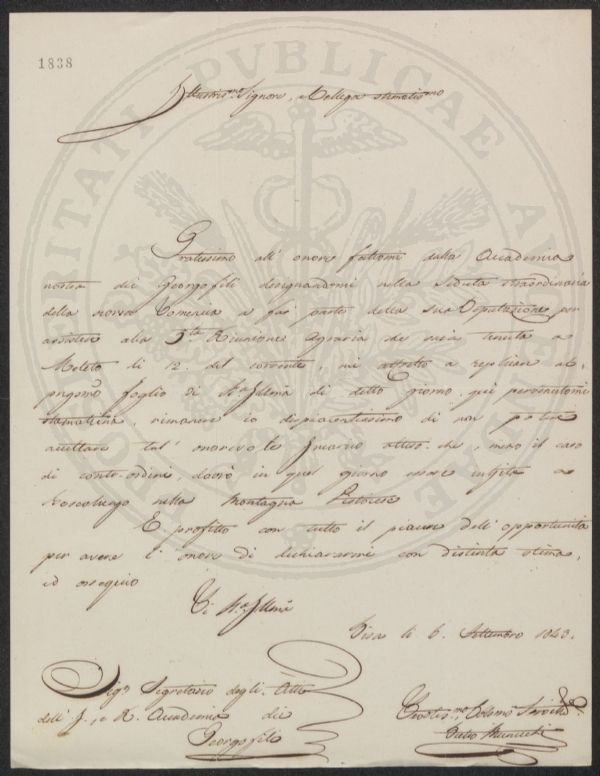 1838
Illustris.mo Signore, e Collega stimatis.mo
Gratissimo all' onore fattomi dalla Accademia
nostra dei Georgofili designandomi nella Seduta straordinaria
della scorsa Domenica a far parte della sua Deputazione per
assistere alla 3.ta Riunione Agraria che sarà tenuta a
Meleto li 12. del corrente, mi affretto a replicar al
pregmo foglio di V.a Illma di detto giorno qui pervenutomi
stamattina, rimanere io dispiacentissimo di non poter
accettare tal' onorevole Incarico atteso che, meno il caso
di contr-ordini, dovrò in quel giorno esser in gita a
Boscolungo nella Montagna Pistoiese
E profitto con tutto il piacere dell' opportunità
per avere l' onore di dichiararmi con distinta stima,
ed ossequio
Di V.a Illma
Pisa li 6. Settembre 1843.
Sig.r Segretario degli Atti
dell' I., e R. Accademia dei
Georgofili
Devotis.mo